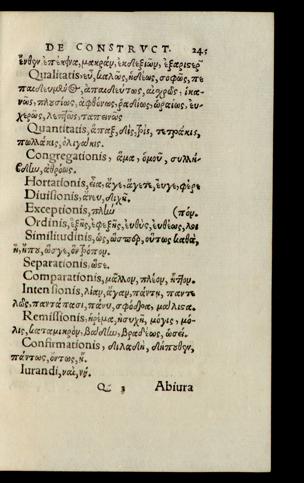 DE CONSTRVCT. 245
ἔνθεν ἐπέκεινα, μακρὰν, ἐκδεξιῶν, ἐξαριστερ
Qualitatis, εὖ, καλῶς, ἡδέως, σοφῶς, πε
παιδευμένως, ἀπαιδεύτως, αἰσχρῶς, ἱκα-
νῶς, πλουσίως, ἀφθόνως, ῥαδίως, ὡραίως, εὐ-
χερῶς, λεπτῶς, ταπεινῶς
Quantitatis, ἅπαξ, δὶς, τρὶς, τετράκις,
πολλάκις, ὀλιγάκις.
Congregationis, ἅμα, ὁμοῦ, συλλή-
βδην, ἀθρόως.
Hortationis, εἶα, ἄγε, ἄγετε, εὖγε, φέρε
Diuisionis, ἄνευ, δίχη.
Exceptionis, πλὴν (πόν.
Ordinis, ἑξῆς, ἐφεξῆς, εὐθὺς, εὐθέως, λοι
Similitudinis, ὡς, ὥσπερ, οὕτως καθὰ,
ᾗ, ἤπου, ὥσγε, ὃν τρόπον.
Separationis, ὥστε.
Comparationis, μᾶλλον, πλέον, ἧττον.
Intensionis, λίαν, ἄγαν, πάντη, παντε
λῶς, παντάπασι, πάνυ, σφόδρα, μάλιστα.
Remissionis, ἠρέμα, ἡσυχῆ, μόγις, μό-
λις, καταμικρὸν, βάδην, βραδέως, ὡσεί.
Confirmationis, δηλαδὴ, δήπουθεν,
πάντως, ὄντως, ἦ.
Iurandi, ναὶ, νή.
Q 3 Abiura